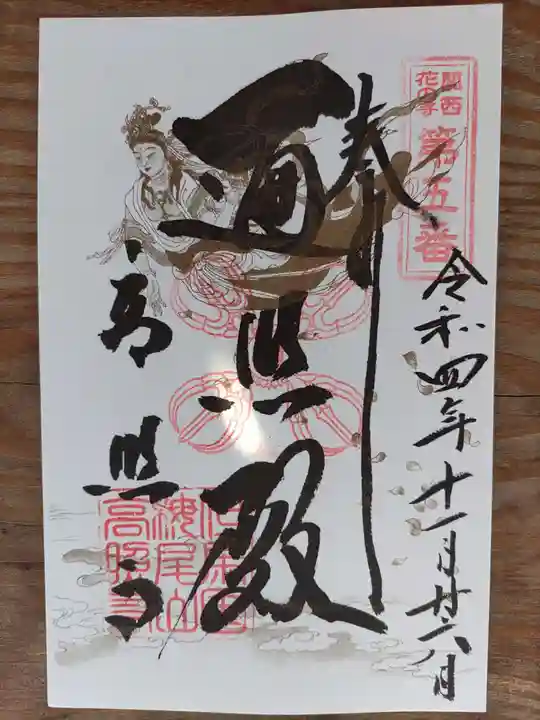 関西
花の寺
第五番
令和四年十一月廿六日
奉拝
遍照殿
高照寺
高照寺